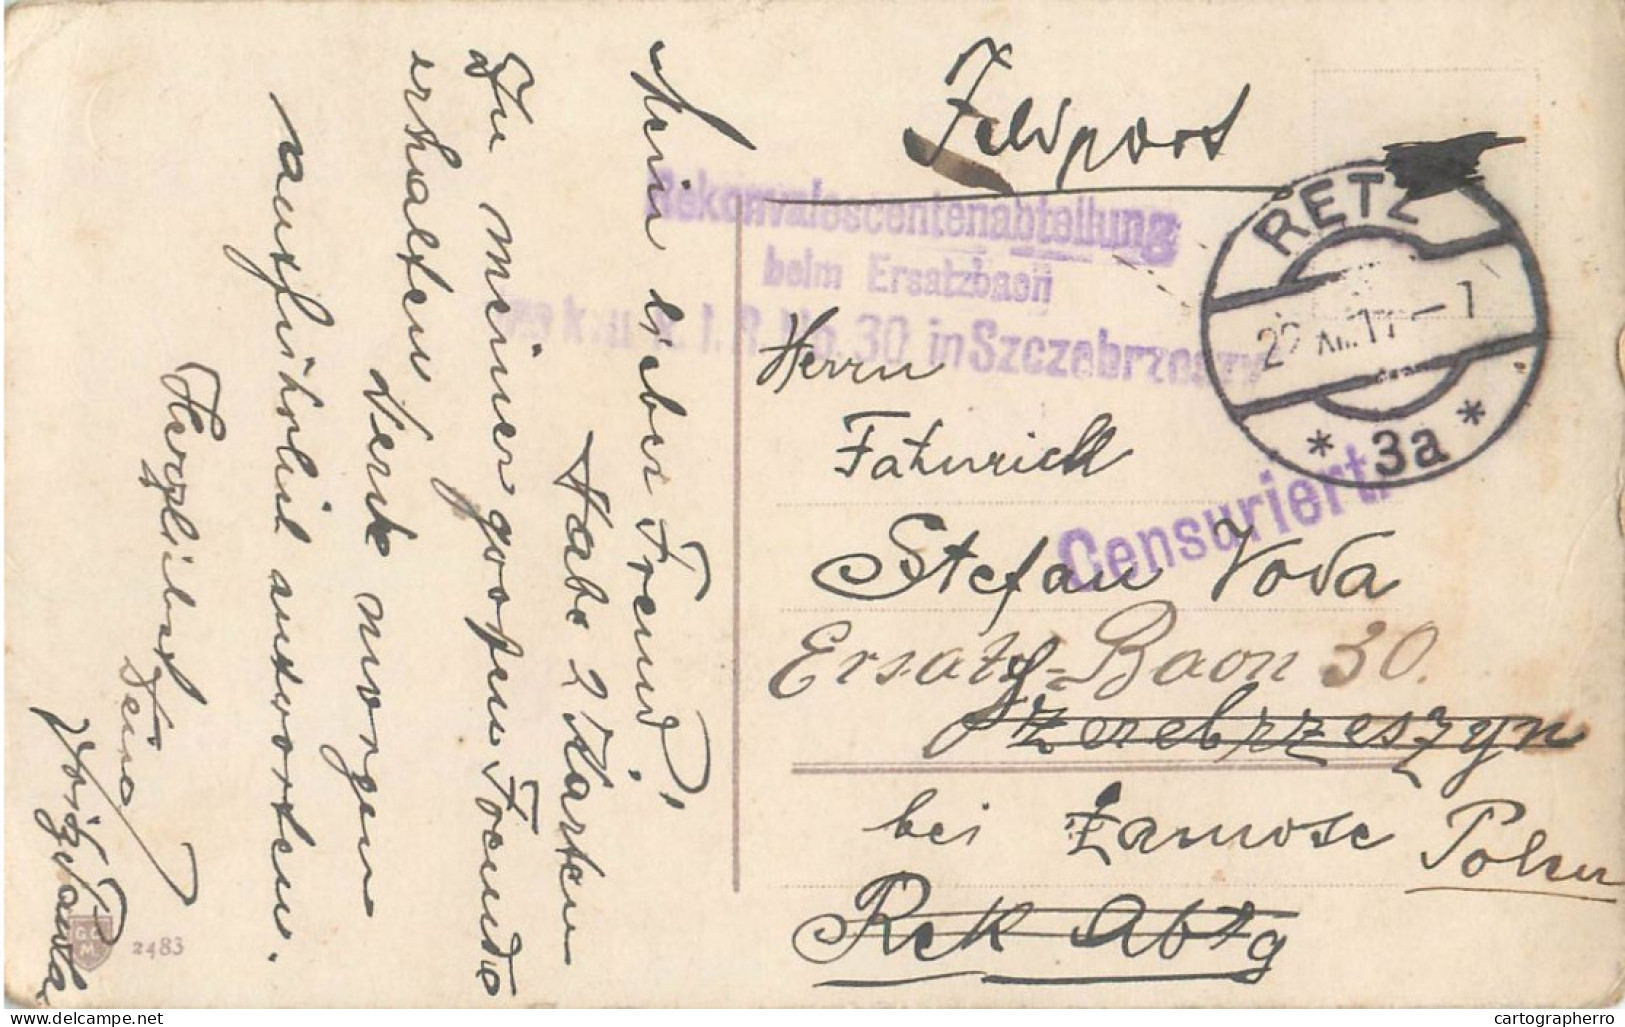 Feldpost
Rekonvalescentenabteilung
beim Ersatzbaon
k.u.k. I.R. No. 30 in Szczebrzeszyn
RETZ
22 XII. 17 - 7
* 3a *
Censuriert
Herrn
Fähnrich
Stefan Voda
Ersatz-Baon 30.
Szczebrzeszyn
bei Zamosc Polen
Rek Abtg
Mein lieber Freund!
Habe 2 Karten
zu meiner grossen Freude
erhalten
Werde morgen
ausführlich antworten.
Herzlichst
Dein
GG
M
2483
cartographerro
www.delcampe.net